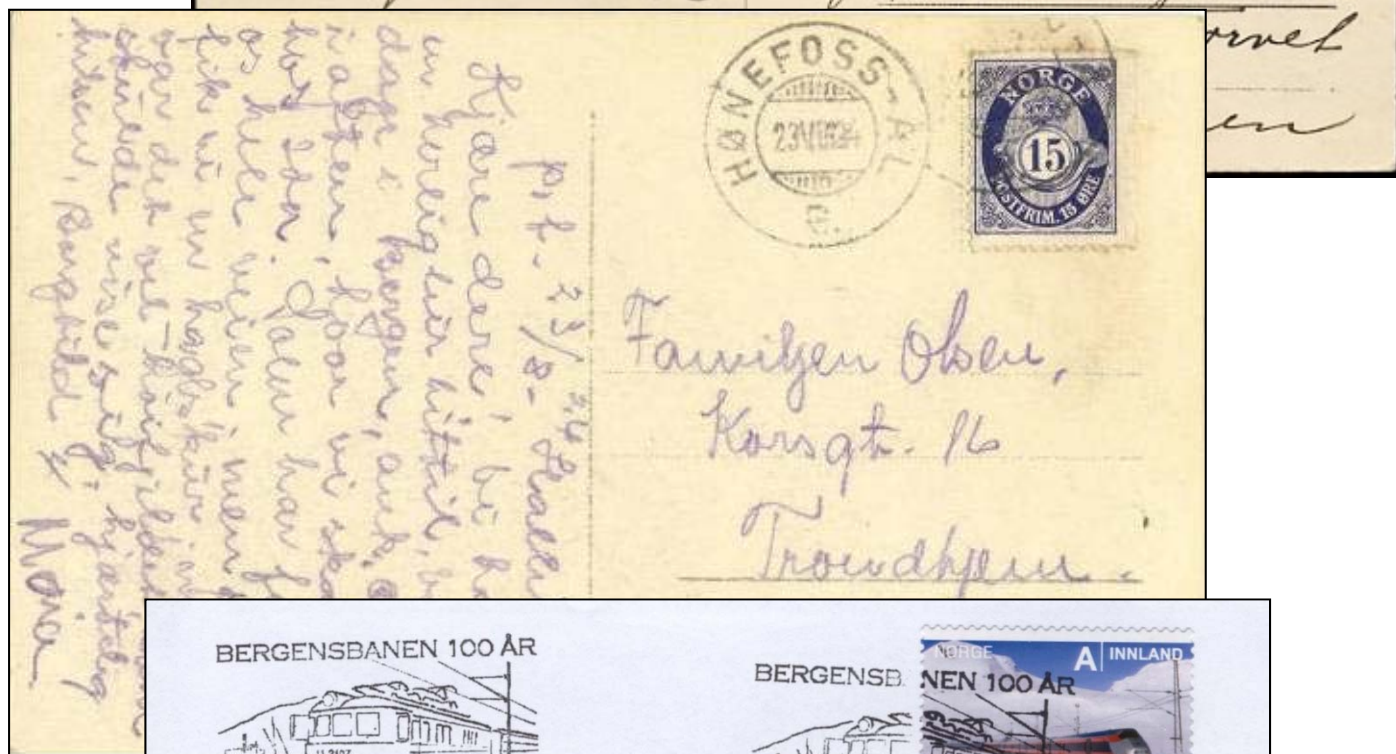 orvet
en
HØNEFOSS-ÅL
23VIII24
C.
NORGE
15
POSTFRIM. 15 ØRE
Familjen Olsen,
Korsgt. 16
Trondhjem.
p.t. 23/8-24
Kjære dere! Vi ha
en herlig tur hittil,
dage i Bergen, ank.
i aften, hvor vi ska
hos Ida. Solen har
os hele veien, men
fik vi en haglskur
var det vel
skulde vise sig. hjærtelig
hilsen, Borghild &
Maia
BERGENSBANEN 100 ÅR
BERGENSB NEN 100 ÅR
NORGE
A INNLAND